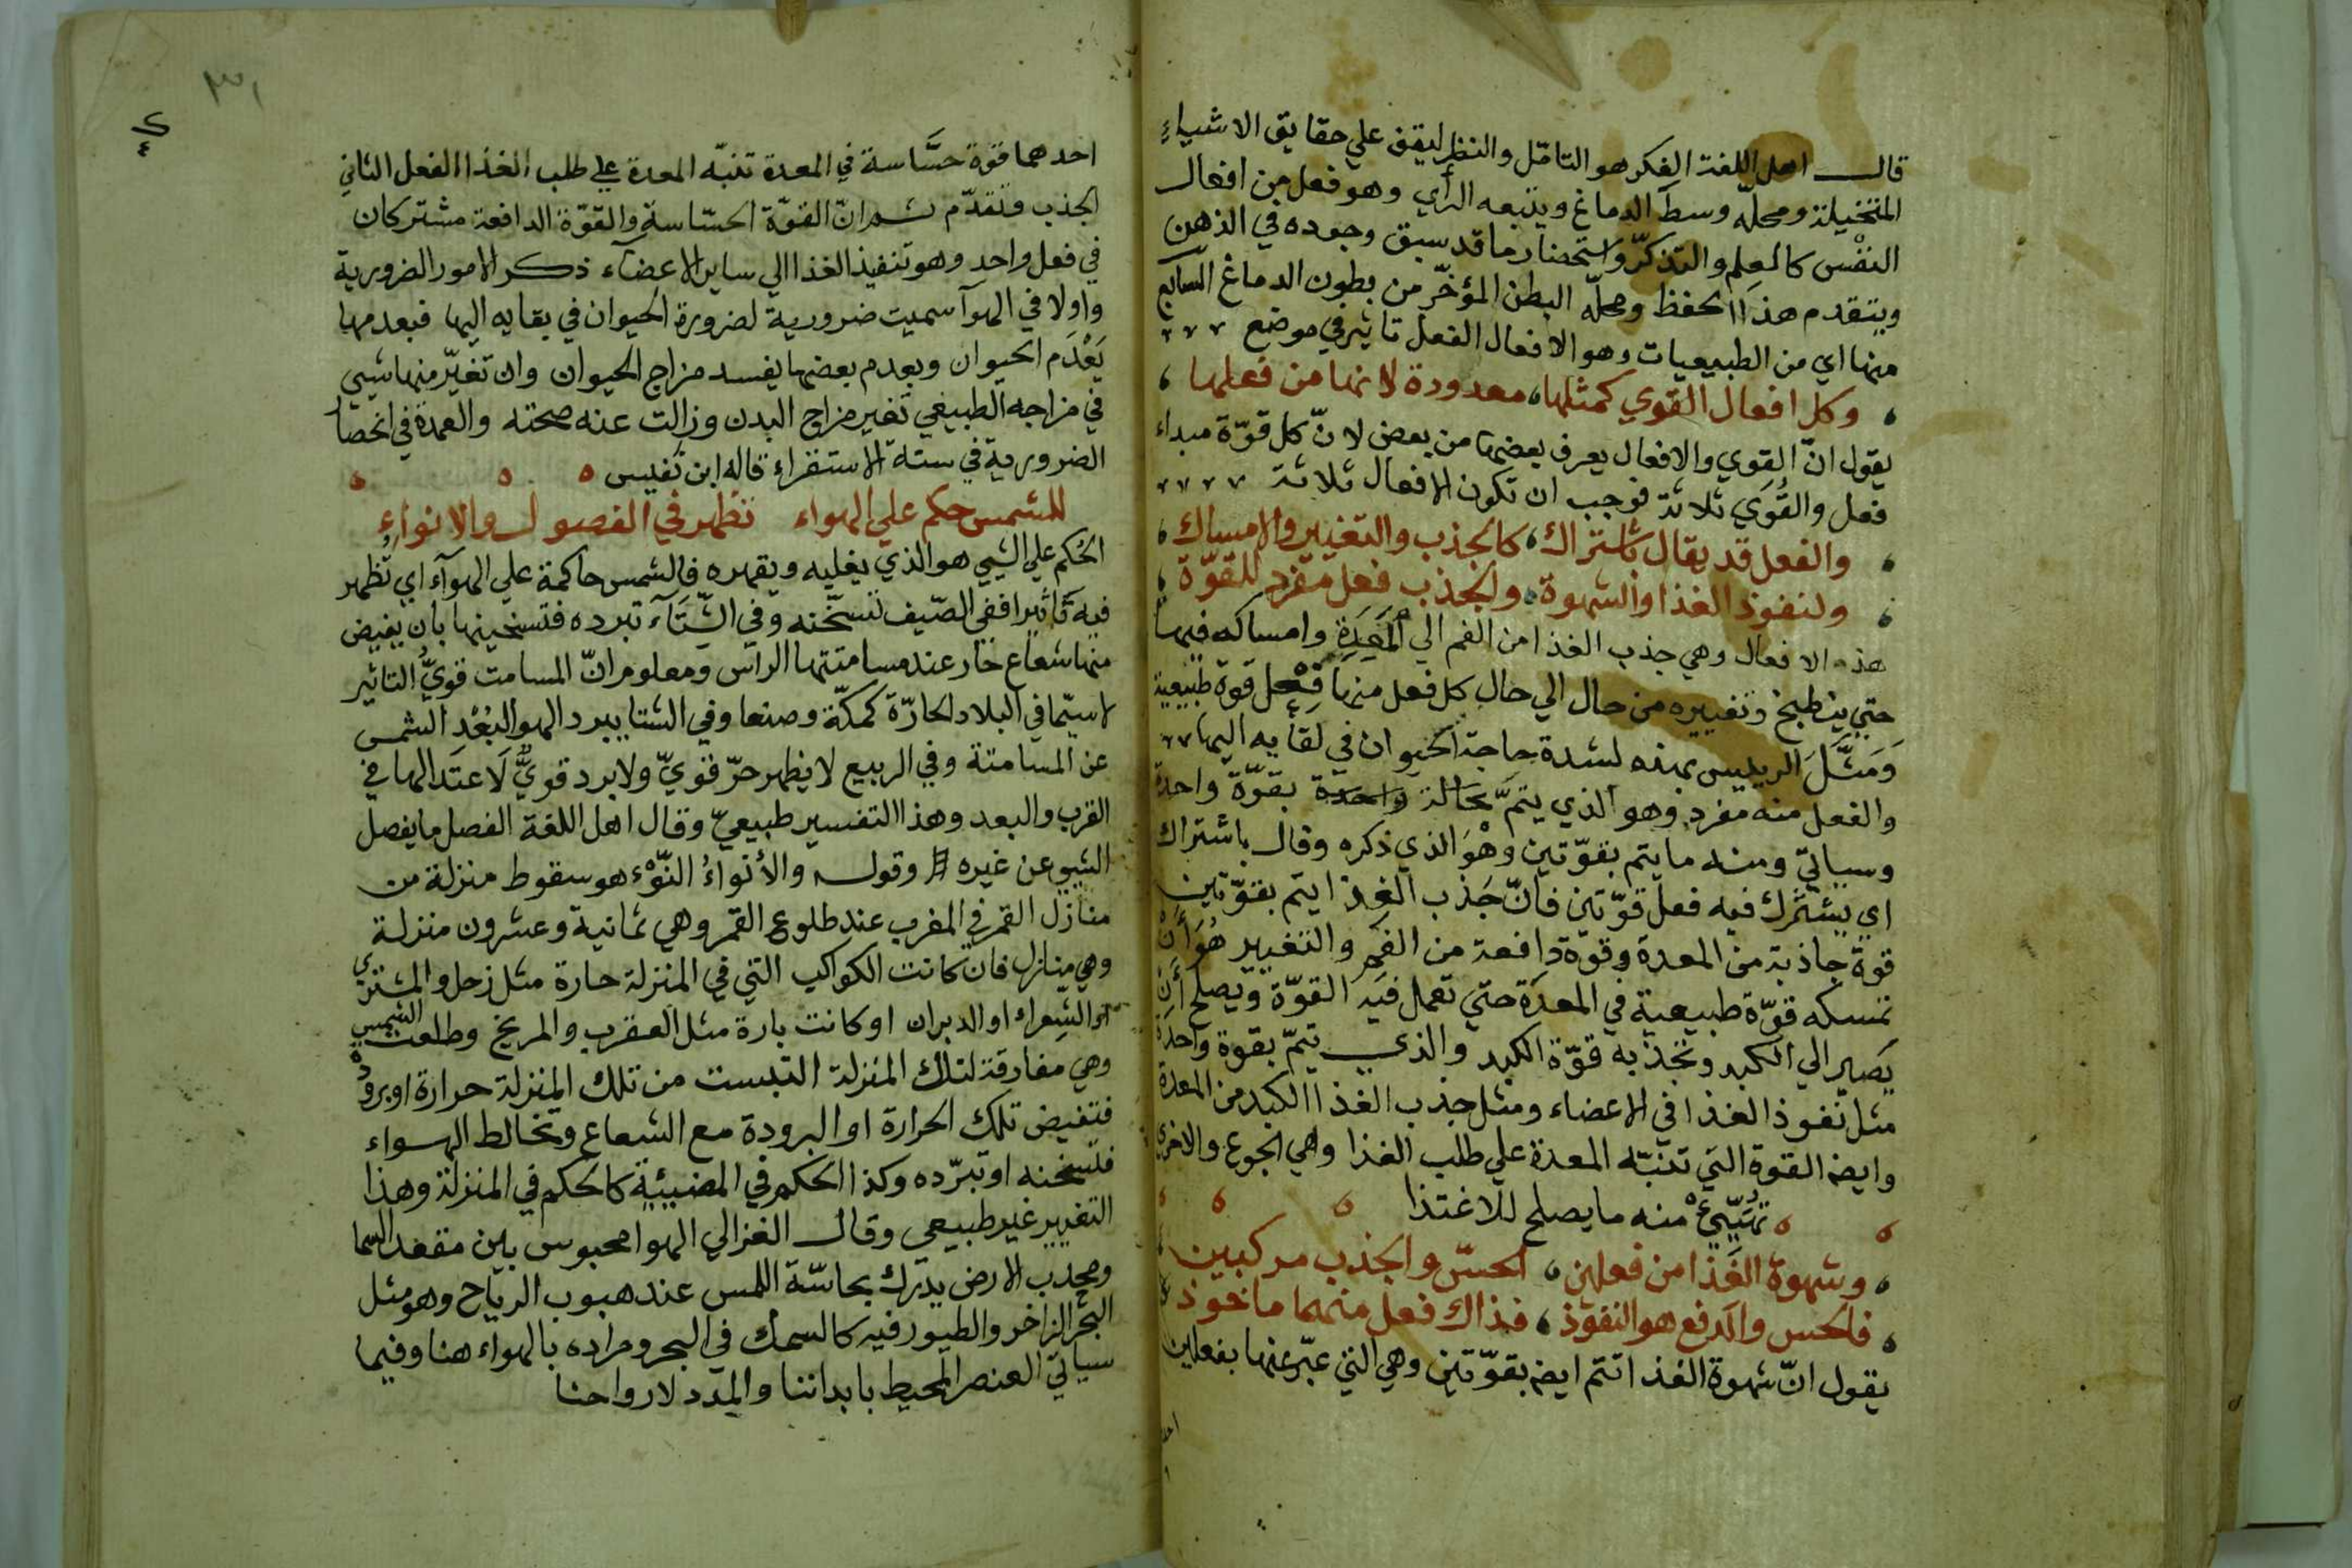 قال اهل اللغة الفكر هو التامّل والنظر ليقف علي حقايق الاشياء
المتخيلة ومحلّه وسط الدماغ ويتبعه الرأي وهو فعل من افعال
النفس كالعلم والتذكّر واستحضار ما قد سبق وجوده في الذهن
ويتقدم هذا الحفظ ومحلّه البطن المؤخّر من بطون الدماغ السابع
منها اي من الطبيعيات وهو الافعال الفعل تاثير في موضع
وكل افعال القوي كمثلها، معدودة لانها من فعلها،
يقول انّ القوي والافعال يعرف بعضها من بعض لانّ كل قوّة مبداء
فعل والقُوَي ثلاثة فوجب ان تكون الافعال ثلاثة
والفعل قد يقال باشتراك، كالجذب والتغيير والامساك،
ولنفوذ الغذا والشهوة، والجذب فعل مفرد للقوّة،
هذه الافعال وهي جذب الغذا من الفم الي المَعِدَةِ وامساكه فيها
حتي ينطبخ وتغييره من حال الي حال كل فعل منها فِعْل قوة طبيعية
وَمَثَّلَ الرييس بهذه لشدة حاجة الحيوان في بقايه اليها
والفعل منه مفرد وهو الذي يتمّ بحالة واحدة بقوّة واحدة
وسياتي ومنه ما يتم بقوّتين وهْوَ الذي ذكره وقال باشتراك
اي يشترك فيه فعل قوّتين فانّ جَذب الغذا يتم بقوّتين
قوة جاذبة من المعدة وقوّة دافعة من الفم والتغيير هُوَ أنْ
تمسكه قوّة طبيعية في المعدة حتي تعمل فيه القوّة ويصلح أن
يصير الي الكبد وتجذبه قوّة الكبد والذي يتمّ بقوة واحدة
مثل نفوذ الغذا في الاعضاء ومثل جذب الغذا الكبد من المعدة
وايضا القوة التي تنبّه المعدة علي طلب الغذا وهي الجوع والاخري
تُهَيّيءُ منه ما يصلح للاغتذا
وشهوة الغذا من فعلين، الحسّ والجذب مركبين
فالحس والدفع هو النفوذ، فذاك فعل منهما ماخوذ
يقول انّ شهوة الغذا تتم ايضا بقوّتين وهي التي عبّر عنها بفعلين
احد
٣١
احدهما قوة حسَّاسة في المعدة تنبّه المعدة علي طلب الغذا الفعل الثاني
الجذب وتقدّم ثم انّ القوّة الحسّاسة والقوّة الدافعة مشتركان
في فعل واحد وهو تنفيذ الغذا الي ساير الاعضآء ذكر الامور الضرورية
واولا في الهوآ سميت ضرورية لضرورة الحيوان في بقايه اليها فبعدمها
يَعْدَم الحيوان وبعدم بعضها يفسد مزاج الحيوان وان تغيّر منها شيي
في مزاجه الطبيعي تغير مزاج البدن وزالت عنه صحته والعمدة في انحصار
الضرورية في ستة الاستقراء قاله ابن نفيس
للشمس حكم علي الهواء تظهر في الفصول والانواء
الحُكم علي الشيي هو الذي يغلبه ويقهره فالشمس حاكمة علي الهوآء اي تُظهر
فيه تاثيرا ففي الصّيف تسخّنه وفي الشّتَآء تبرده فتسخينها بان يفيض
منها شعاع حار عند مسامتتها الراس ومعلوم انّ المسامت قويُّ التاثير
لا سيّما في البلاد الحارّة كمكّة وصنعا وفي الشتا يبرد الهوا لبُعْدِ الشمس
عن المسامتة وفي الربيع لا يظهر حرّ قويّ ولا برد قويٌّ لاعتدالها في
القرب والبعد وهذا التفسير طبيعيّ وقال اهل اللغة الفصل ما يفصل
الشيء عن غيره وقوله والأنواءُ النّوْء هو سقوط منزلة من
منازل القمر في المغرب عند طلوع القمر وهي ثمانية وعشرون منزلة
وهي منازل فان كانت الكواكب التي في المنزلة حارة مثل زحل والمشتري
او الشعراء او الدبران او كانت بارة مثل العقرب والمريخ وطلعت الشمس
وهي مفارقة لتلك المنزلة التبست من تلك المنزلة حرارة او برودة
فتفيض تلك الحرارة او البرودة مع الشعاع وتخالط الهواء
فتسخنه او تبرّده وكذا الحكم في المضيئة كالحكم في المنزلة وهذا
التغيير غير طبيعي وقال الغزالي الهوا محبوس بين مقعد السما
ومحدب الارض يدرك بحاسّة اللمس عند هبوب الرياح وهو مثل
البحر الزاخر والطيور فيه كالسمك في البحر ومراده بالهواء هنا وفيما
سياتي العنصر المحيط بابداننا والمدد لارواحنا